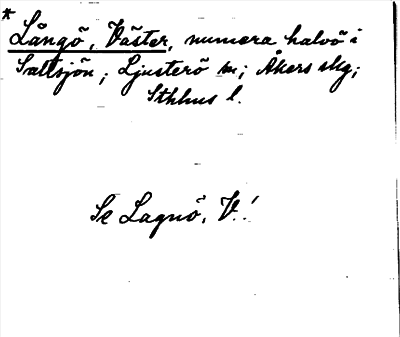 * Långö, Väster, numera halvö i
Saltsjön; Ljusterö sn; Åkers skg;
Sthlms l.
Se Lagnö, V.!